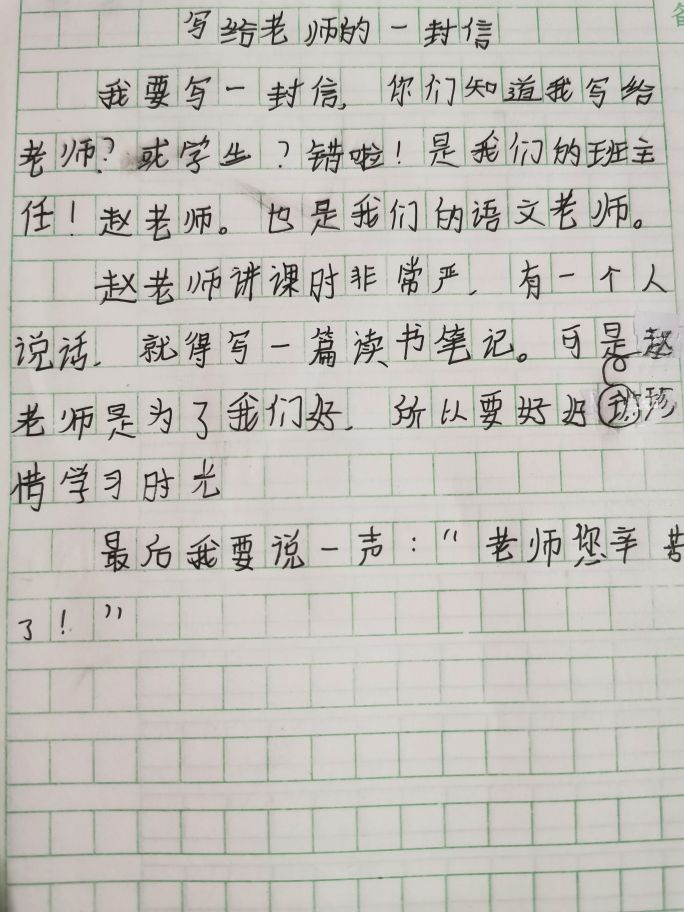 写给老师的一封信
我要写一封信，你们知道我写给
老师？或学生？错啦！是我们的班主
任！赵老师。也是我们的语文老师。
赵老师讲课时非常严，有一个人
说话，就得写一篇读书笔记。可是赵
老师是为了我们好，所以要好好珍
惜学习时光
最后我要说一声：“老师您辛苦
了！”